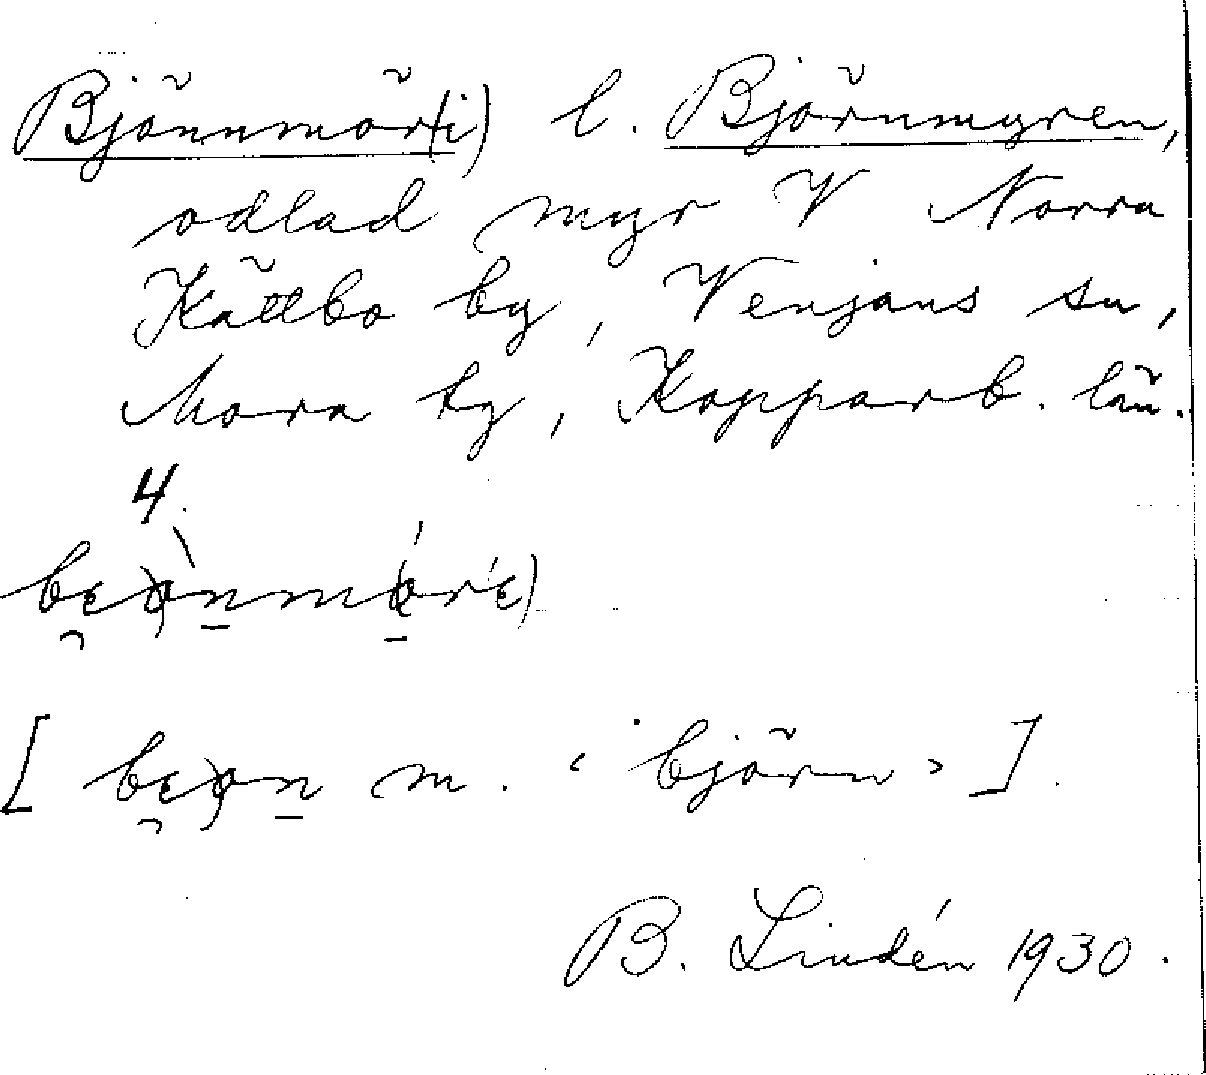 Björnmör(i) l. Björnmyren,
odlad myr V Norra
Kättbo by, Venjans sn,
Mora tg, Kopparb. län.
4.
[ m. ‹ björn › ].
B. Lindén 1930.